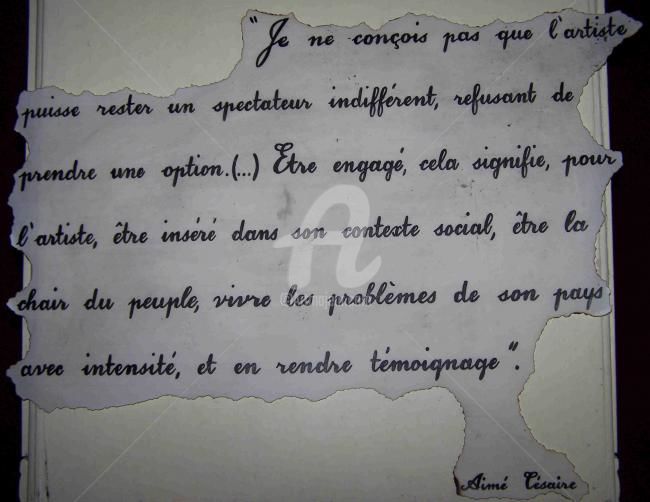 "Je ne conçois pas que l'artiste
puisse rester un spectateur indifférent, refusant de
prendre une option.(...) Etre engagé, cela signifie, pour
l'artiste, être inséré dans son contexte social, être la
chair du peuple, vivre les problèmes de son pays
avec intensité, et en rendre témoignage".
Aimé Césaire